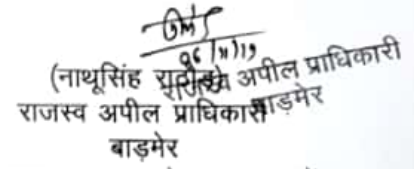 06/11/19
(नाथूसिंह राठौड़)
राजस्व अपील प्राधिकारी
राजस्व अपील प्राधिकारी
बाड़मेर
बाड़मेर